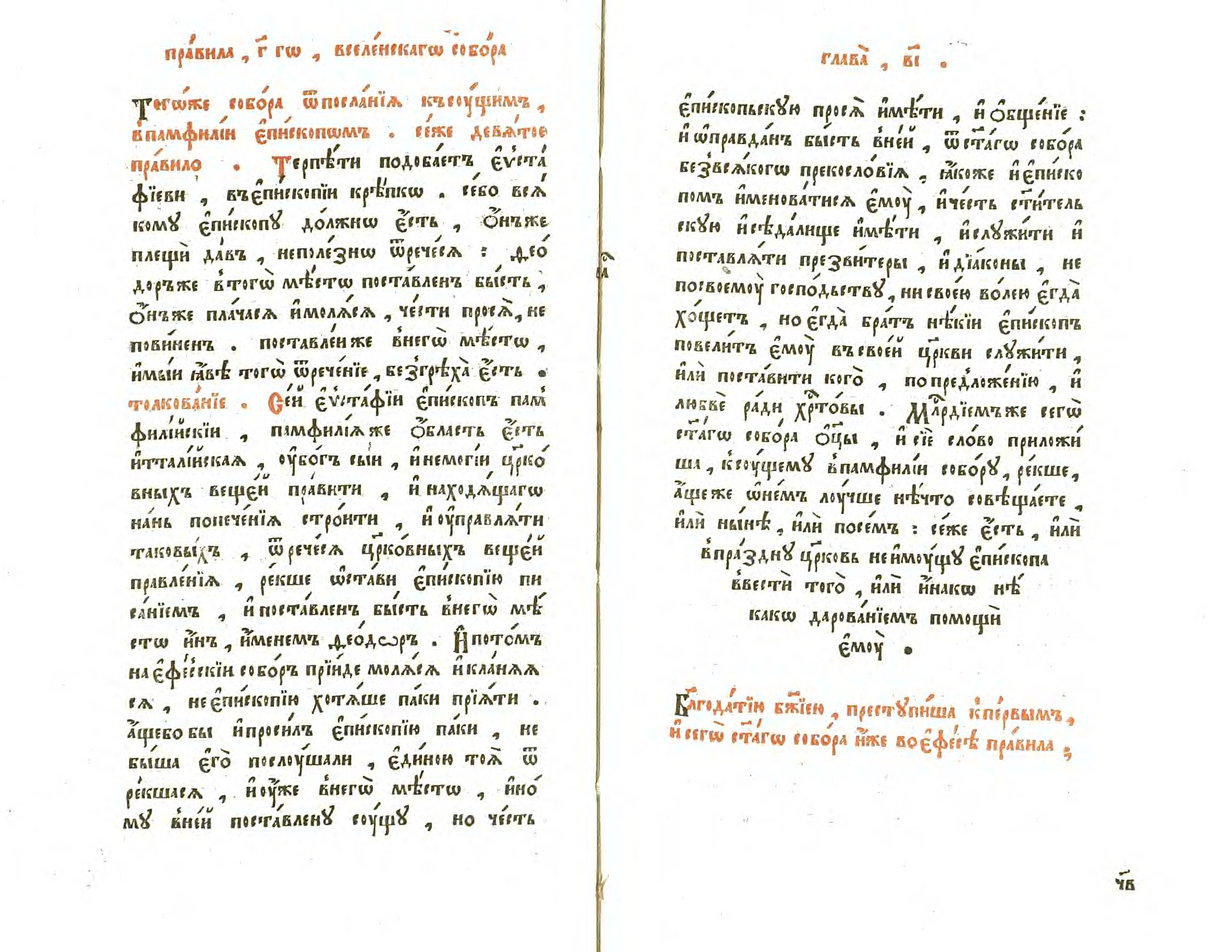 пра́вила , г҃ гѡ , вселе́нскагѡ собо́ра
Тогѡ́же собо́ра ѿпосла́нїѧ късꙋ́щимъ ,
впамфилі́и є҆пі́скопѡмъ . се́же девѧ́тое
пра́вило . Терпѣ́ти подоба́етъ є҆ѵста́
фїеви , въє҆пі́скопїи крѣ́пкѡ . се́бо всѧ́
кому є҆пі́скопꙋ до́лжнѡ є҆́сть , Ѻ҆́нъже
плещѝ да́въ , неполе́знѡ ѿрече́сѧ : Ѳео́
доръже втогѡ̀ мѣ́стѡ поста́вленъ бы́сть ,
Ѻ҆́нъже пла́часѧ и҆молѧ́сѧ , че́сти просѧ̀ , не
пови́ненъ . поста́вленже внегѡ̀ мѣ́стѡ ,
и҆мы́и ꙗ҆́вѣ тогѡ̀ ѿрече́нїе , безгрѣха̀ є҆́сть .
толкова́нїе . Се́й є҆ѵста́фїи є҆пі́скопъ пам
филі́йскїи , памфилі́ѧже ѻ҆́бласть є҆́сть
и҆тталі́йская , ᲂу҆бо́гъ сы́и , и҆немогі́и цр҃ко́
вныхъ веще́й пра́вити , и҆ находѧ́щагѡ
на́нь попече́нїѧ стро́ити , и҆ᲂу҆правлѧ́ти
таковы́хъ , ѿрече́сѧ цр҃ко́вныхъ веще́й
правле́нїѧ , ре́кше ѡ҆ста́ви є҆пі́скопїю пи
са́нїемъ , и҆поста́вленъ бы́сть внегѡ̀ мѣ́
стѡ и҆́нъ , и҆́менемъ Ѳео́дѡръ . И҆ пото́мъ
на є҆фе́сскїи собо́ръ прїи́де молѧ́сѧ и҆кла́нѧѧ
сѧ , не є҆пі́скопїю хотѧ́ше па́ки прїѧ́ти .
а҆́щебо бы и҆проси́лъ є҆пі́скопїю па́ки , не
бы́ша є҆го̀ послꙋ́шали , є҆ди́ною тоѧ̀ ѿ
ре́кшасѧ , и҆ᲂу҆́же внегѡ̀ мѣ́стѡ , и҆но́
мꙋ вне́й поста́вленꙋ сꙋ́щꙋ , но че́сть
глава̀ , в҃і .
є҆пі́скопьскꙋю просѧ̀ и҆мѣ́ти , и҆ ѻ҆бще́нїе :
и҆ ѡ҆правда́нъ бы́сть вне́й , ѿ ст҃а́гѡ собо́ра
безвсѧ́когѡ прекосло́вїѧ , ꙗ҆́коже и҆ є҆пі́ско
помъ и҆менова́тисѧ є҆мꙋ̀ , и҆че́сть ст҃и́тель
скꙋю и҆ сѣда́лище и҆мѣ́ти , и҆слꙋжи́ти и҆
поставлѧ́ти презви́теры , и҆дїа́коны , не
посвоемꙋ̀ госпо́дьствꙋ , нисвое́ю во́лею є҆гда̀
хо́щетъ , но є҆гда̀ бра́тъ нѣ́кїи є҆пі́скопъ
повели́тъ є҆мꙋ̀ въсвое́й цр҃кви слꙋжи́ти ,
и҆лѝ поста́вити кого̀ , попредложе́нїю , и҆
любвѐ ра́ди хр҃то́вы . Млⷭ҇рдїемъже сегѡ̀
ст҃а́гѡ собо́ра ѻ҆ц҃ы̀ , и҆ сїѐ сло́во приложи́
ша , ксꙋ́щемꙋ впамфилі́и собо́рꙋ , ре́кше ,
а҆́щеже ѡ҆не́мъ лꙋ́чше нѣ́что совѣща́ете ,
и҆лѝ ны́нѣ , и҆лѝ посе́мъ : се́же є҆́сть , и҆лѝ
впра́зднꙋ цр҃ковь неи҆мꙋ́щꙋ є҆пі́скопа
ввестѝ того̀ , и҆лѝ и҆на́кѡ нѣ́
какѡ дарова́нїемъ помощѝ
є҆мꙋ̀ .
Бл҃года́тїю бж҃їею , преступи́ша кпе́рвымъ ,
и҆ сегѡ̀ ст҃а́гѡ собо́ра и҆́же во є҆фе́сѣ пра́вила ;
ч҃в